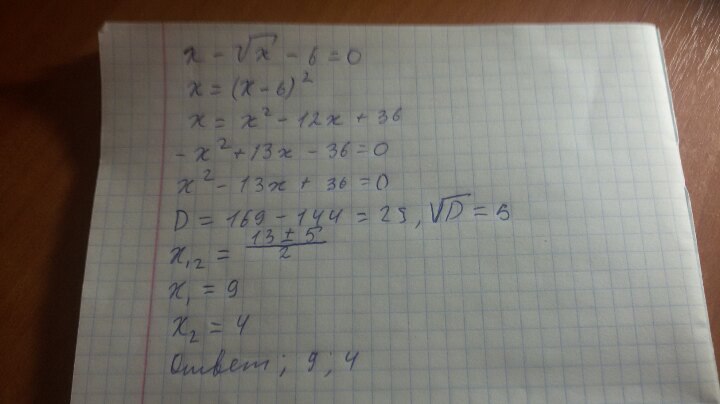 x - √x - 6 = 0
x = (x-6)²
x = x² - 12x + 36
-x² + 13x - 36 = 0
x² - 13x + 36 = 0
D = 169 - 144 = 25, √D = 5
x₁,₂ = (13 ± 5)/2
x₁ = 9
x₂ = 4
Ответ; 9; 4